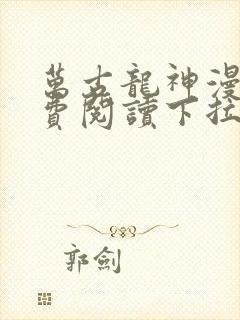 萬古龍神漫
費閱讀下拉
郭劍